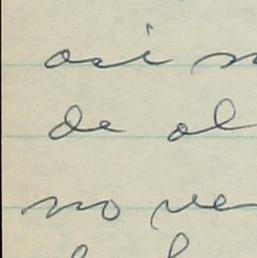 asi
de al
no ve